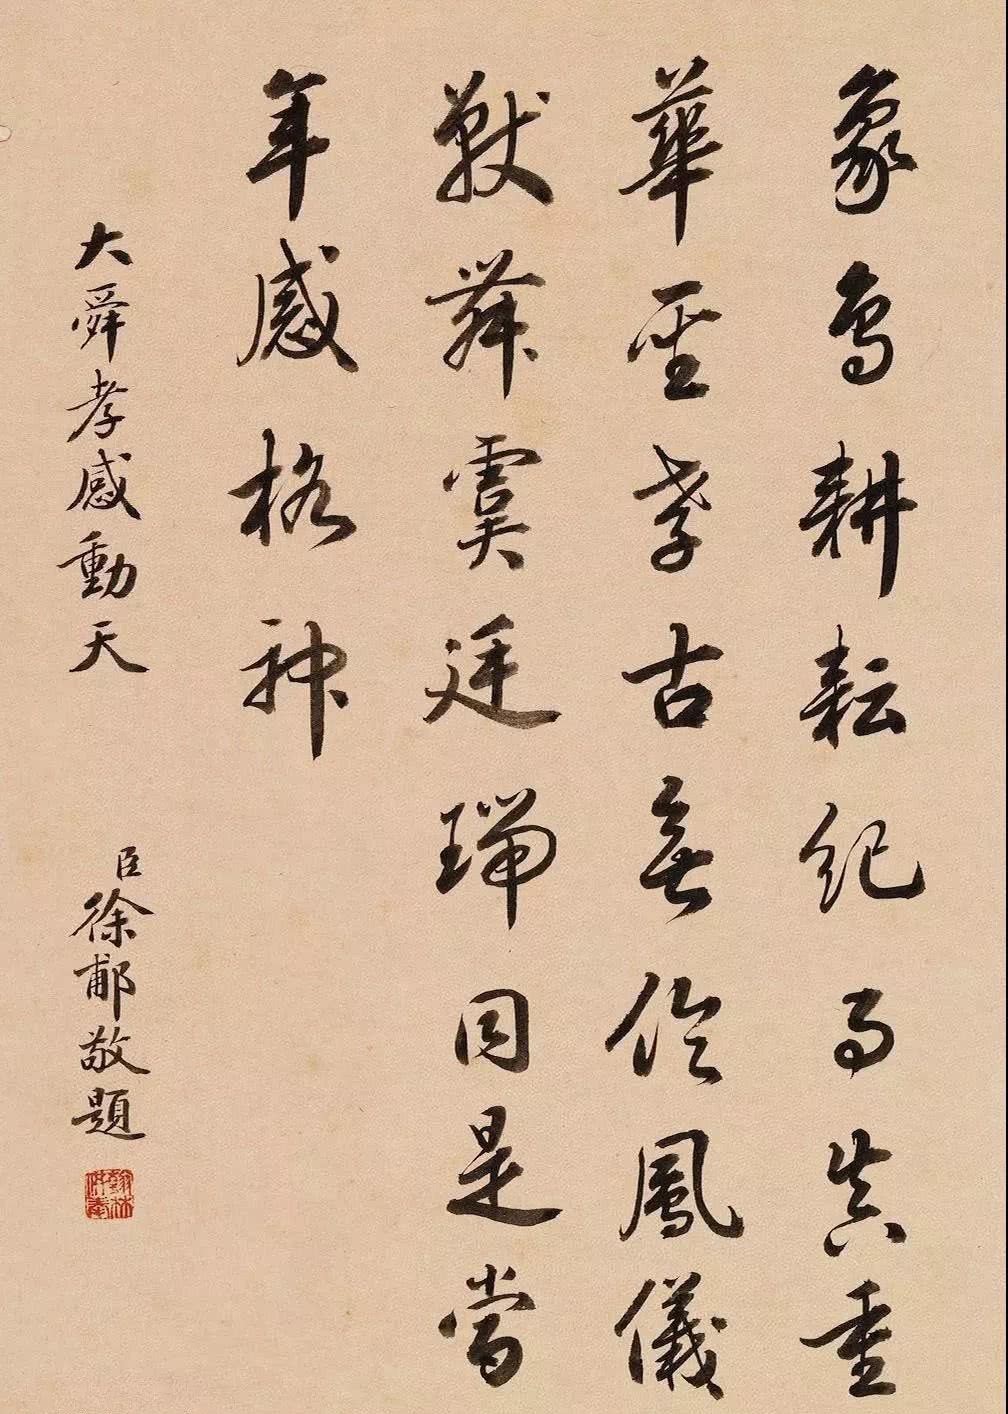 象鳥耕耘紀事真重
華至孝古無倫鳳儀
獸舞虞廷瑞同是當
年感格神
大舜孝感動天
臣徐郙敬題
翰林供奉